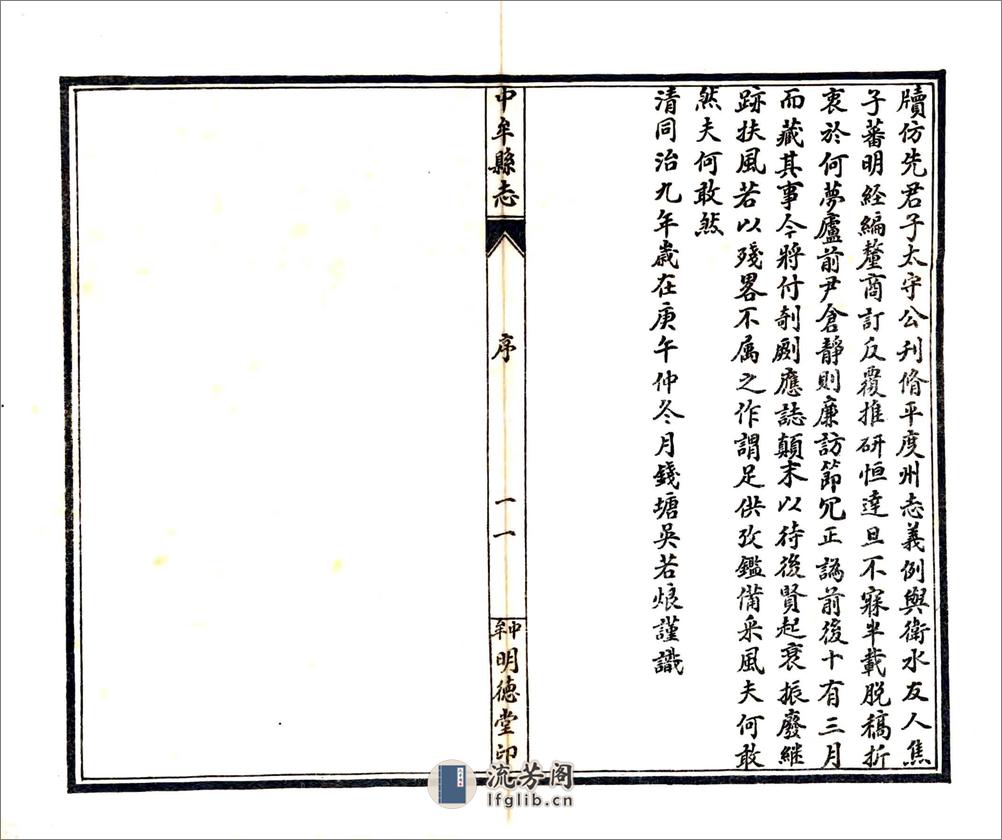 牘仿先君子太守公刋脩平度州志義例與衛水友人焦
子蕃明経編釐商訂反覆推研恒達旦不寐半載脱稿折
衷於何夢廬前尹倉靜則廉訪節冗正譌前後十有三月
而藏其事今將付剞劂應誌顛末以待後賢起衰振廢継
跡扶風若以殘畧不属之作謂足供攷鑑備采風夫何敢
然夫何敢然
清同治九年歲在庚午仲冬月錢塘吳若烺謹識
中牟縣志
序
一一
中牟
明德堂印
流芳阁
lfglib.cn